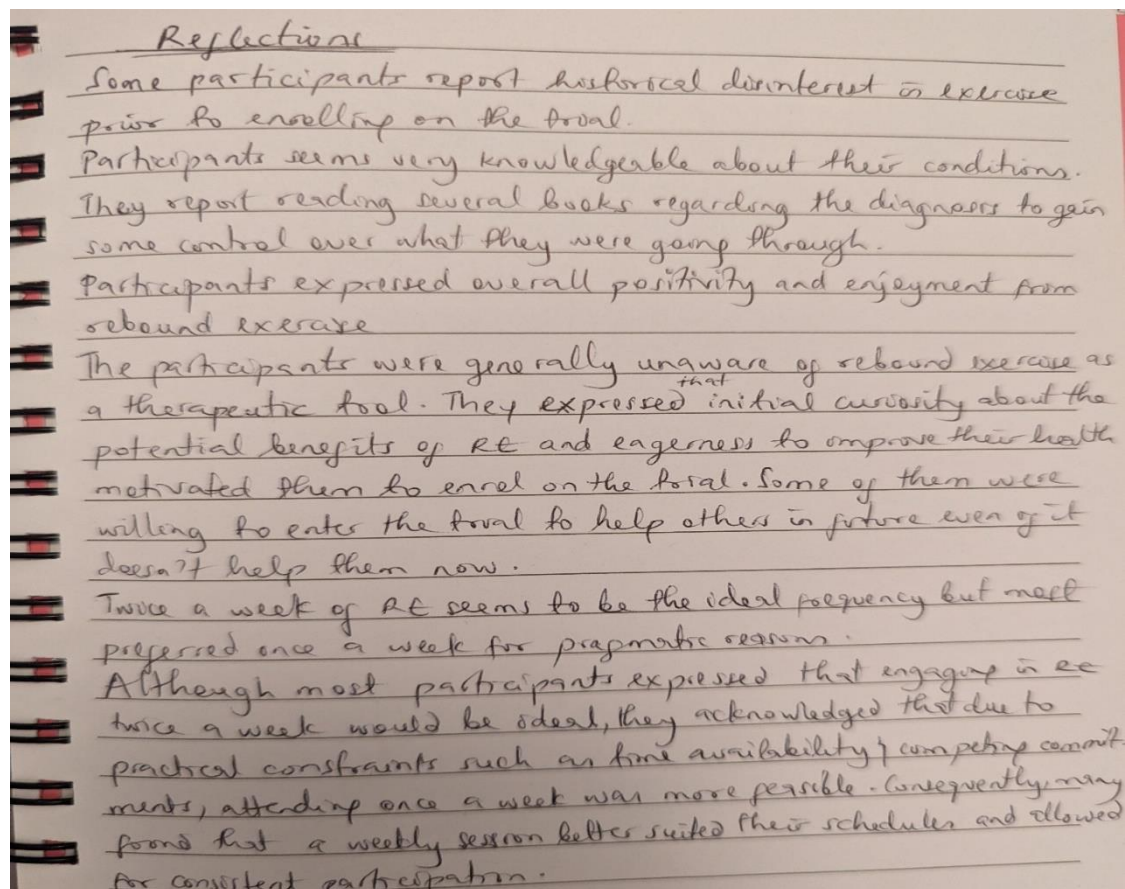 Reflections
Some participants report historical disinterest in exercise
prior to enrolling on the trial.
Participants seems very knowledgeable about their conditions.
They report reading several books regarding the diagnosis to gain
some control over what they were going through.
Participants expressed overall positivity and enjoyment from
rebound exercise
The participants were generally unaware of rebound exercise as
a therapeutic tool. They expressed that initial curiosity about the
potential benefits of RE and eagerness to improve their health
motivated them to enrol on the trial. Some of them were
willing to enter the trial to help others in future even if it
doesn't help them now.
Twice a week of RE seems to be the ideal frequency but most
preferred once a week for pragmatic reasons.
Although most participants expressed that engaging in RE
twice a week would be ideal, they acknowledged that due to
practical constraints such as time availability & competing commit-
ments, attending once a week was more feasible. Consequently, many
found that a weekly session better suited their schedules and allowed
for consistent participation.